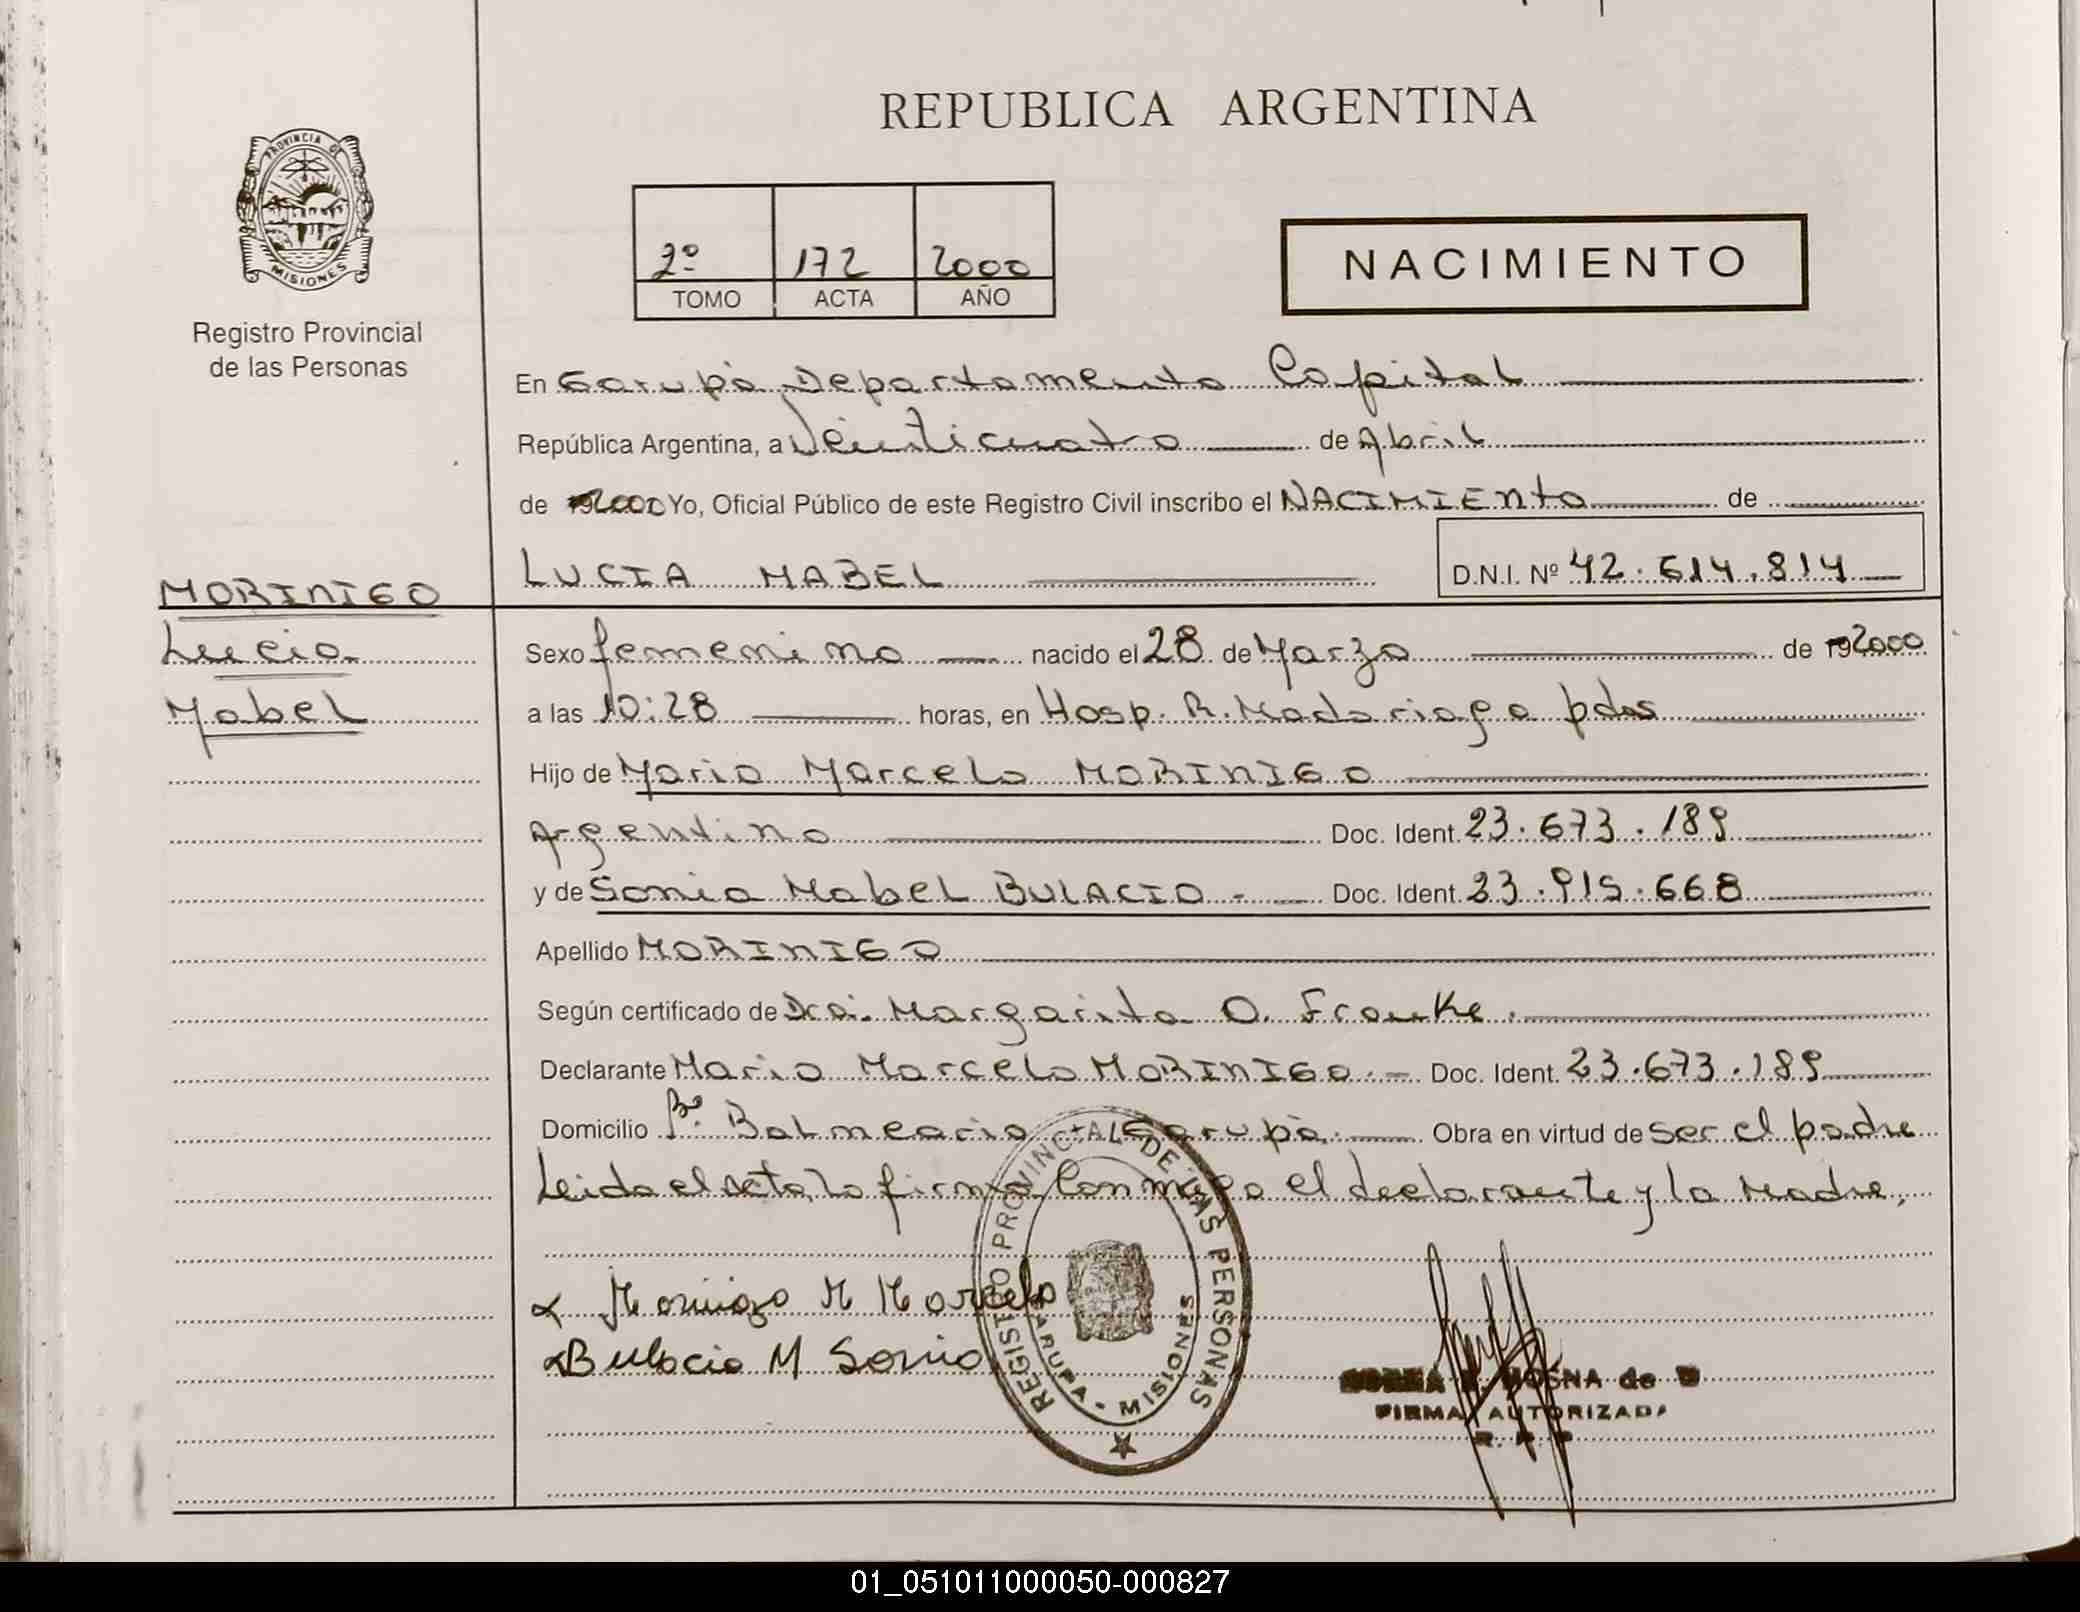 REPUBLICA ARGENTINA
PROVINCIA DE
MISIONES
Registro Provincial
de las Personas
2º 172 2000
TOMO ACTA AÑO
NACIMIENTO
En Garupá Departamento Capital
República Argentina, a Veinticuatro de Abril
de 2000 Yo, Oficial Público de este Registro Civil inscribo el NACIMIENTO de
LUCIA MABEL D.N.I. Nº 42.614.814
MORINIGO
Lucia
Mabel
Sexo femenino nacido el 28 de Marzo de 2000
a las 10:28 horas, en Hosp. R. Madariaga pdas
Hijo de Mario Marcelo MORINIGO
Argentino Doc. Ident. 23.673.189
y de Sonia Mabel BULACIO.- Doc. Ident. 23.915.668
Apellido MORINIGO
Según certificado de Dra. Margarita O. Franke.
Declarante Mario Marcelo MORINIGO.- Doc. Ident. 23.673.189
Domicilio Bº. Balneario - Garupá. Obra en virtud de ser el padre
Leida el acta, la firma Conmigo el declarante y la Madre,
Morinigo M Marcelo
Bulacio M Sonia
REGISTRO PROVINCIAL DE LAS PERSONAS
GARUPA - MISIONES
MOSNA de
FIRMA AUTORIZADA
01_051011000050-000827